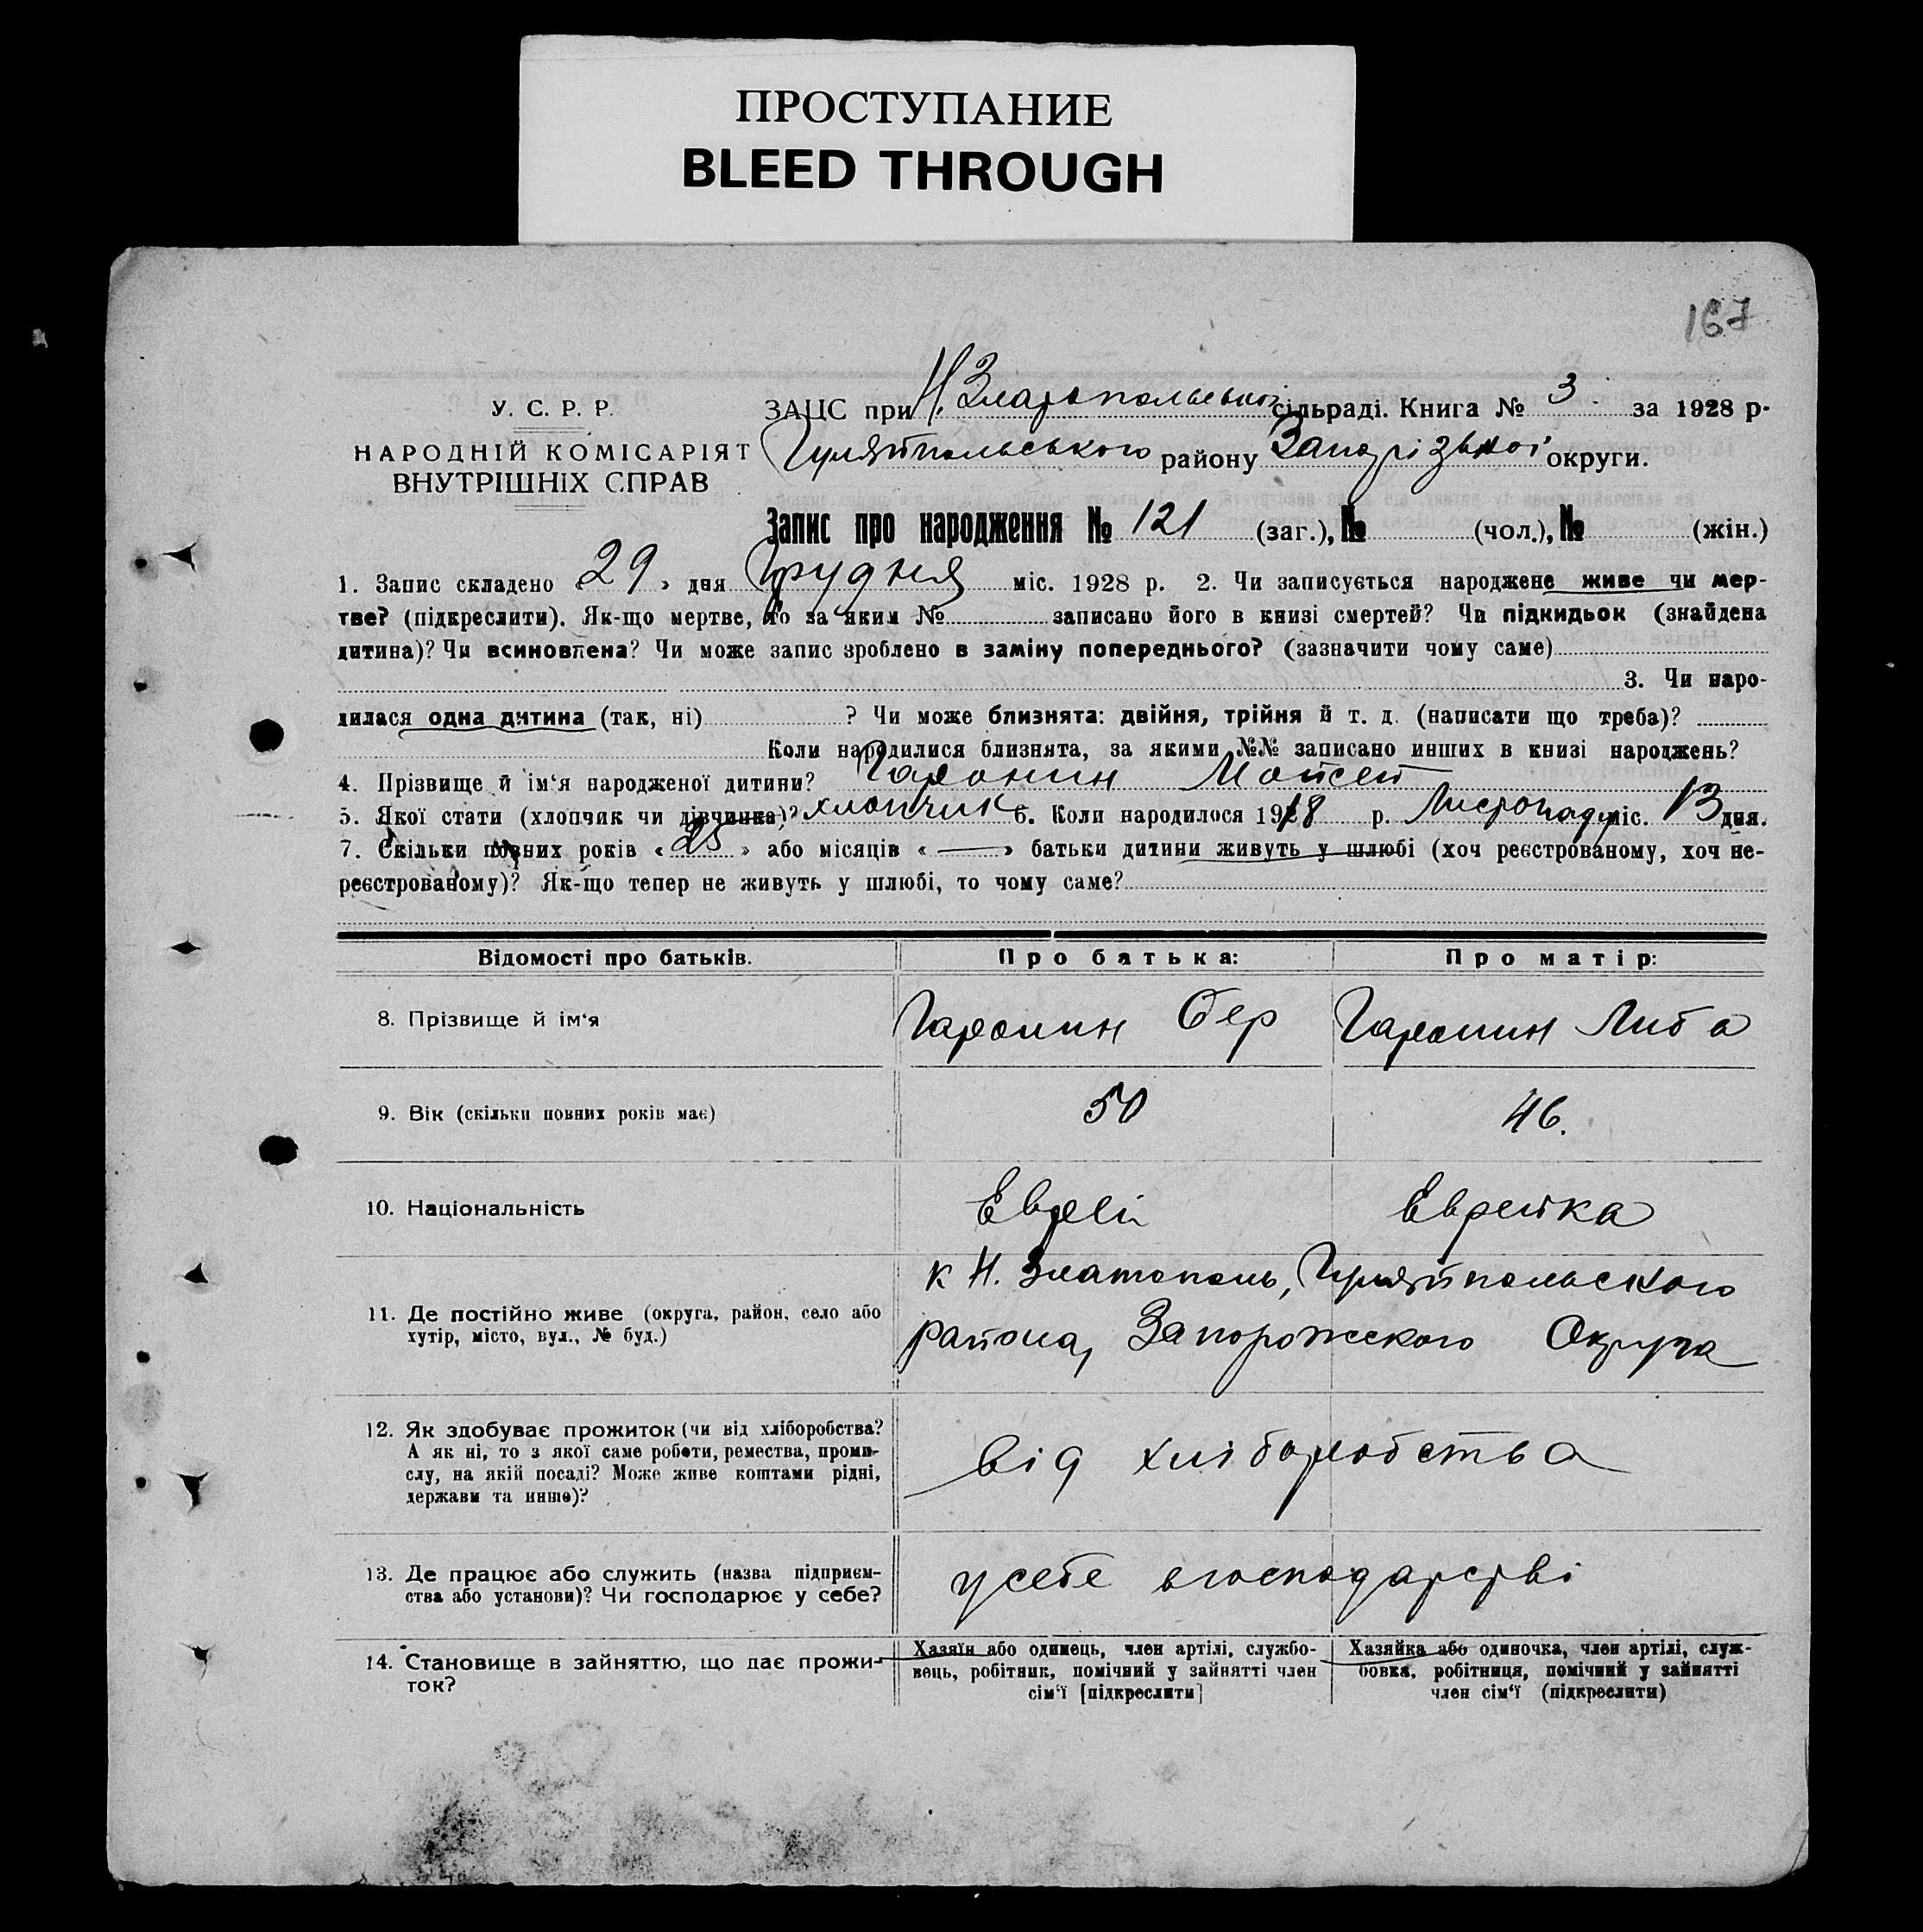 ПРОСТУПАНИЕ
BLEED THROUGH
167
У. С. Р. Р.
НАРОДНІЙ КОМІСАРІЯТ
ВНУТРІШНІХ СПРАВ
ЗАЦС при Н. Златопольській сільраді. Книга № 3 за 1928 р.
Гуляйпольського району Запорізької округи.
Запис про народження № 121 (заг.), № (чол.), № (жін.)
1. Запис складено «29» дня Грудня міс. 1928 р. 2. Чи записується народжене живе чи мер-
тве? (підкреслити). Як-що мертве, то за яким № записано його в книзі смертей? Чи підкидьок (знайдена
дитина)? Чи всиновлена? Чи може запис зроблено в заміну попереднього? (зазначити чому саме)
3. Чи наро-
дилася одна дитина (так, ні) ? Чи може близнята: двійня, трійня й т. д. (написати що треба)?
Коли народилися близнята, за якими №№ записано инших в книзі народжень?
4. Прізвище й ім‘я народженої дитини? Гаронин Мойсей
5. Якої стати (хлопчик чи дівчинка)? хлопчик 6. Коли народилося 1918 р. Листопаду міс. 13 дня.
7. Скільки повних років «25» або місяців «—» батьки дитини живуть у шлюбі (хоч реєстрованому, хоч не-
реєстрованому)? Як-що тепер не живуть у шлюбі, то чому саме?
Відомості про батьків. Про батька: Про матір:
8. Прізвище й ім‘я Гаронин Бер Гаронин Либа
9. Вік (скільки повних років має) 50 46.
10. Національність Еврей Еврейка
11. Де постійно живе (округа, район, село або
хутір, місто, вул., № буд.)
к Н. Златополь, Гуляйпольского
района, Запорожского Округа
12. Як здобуває прожиток (чи від хліборобства?
А як ні, то з якої саме роботи, ремества, проми-
слу, на якій посаді? Може живе коштами рідні,
держави та инше)?
від хліборобства
13. Де працює або служить (назва підприєм-
ства або установи)? Чи господарює у себе?
у себе в господарстві
14. Становище в зайняттю, що дає прожи-
ток?
Хазяїн або одинець, член артілі, службо-
вець, робітник, помічний у зайнятті член
сім‘ї [підкреслити]
Хазяйка або одиночка, член артілі, служ-
бовка, робітниця, помічний у зайнятті
член сім‘ї (підкреслити)